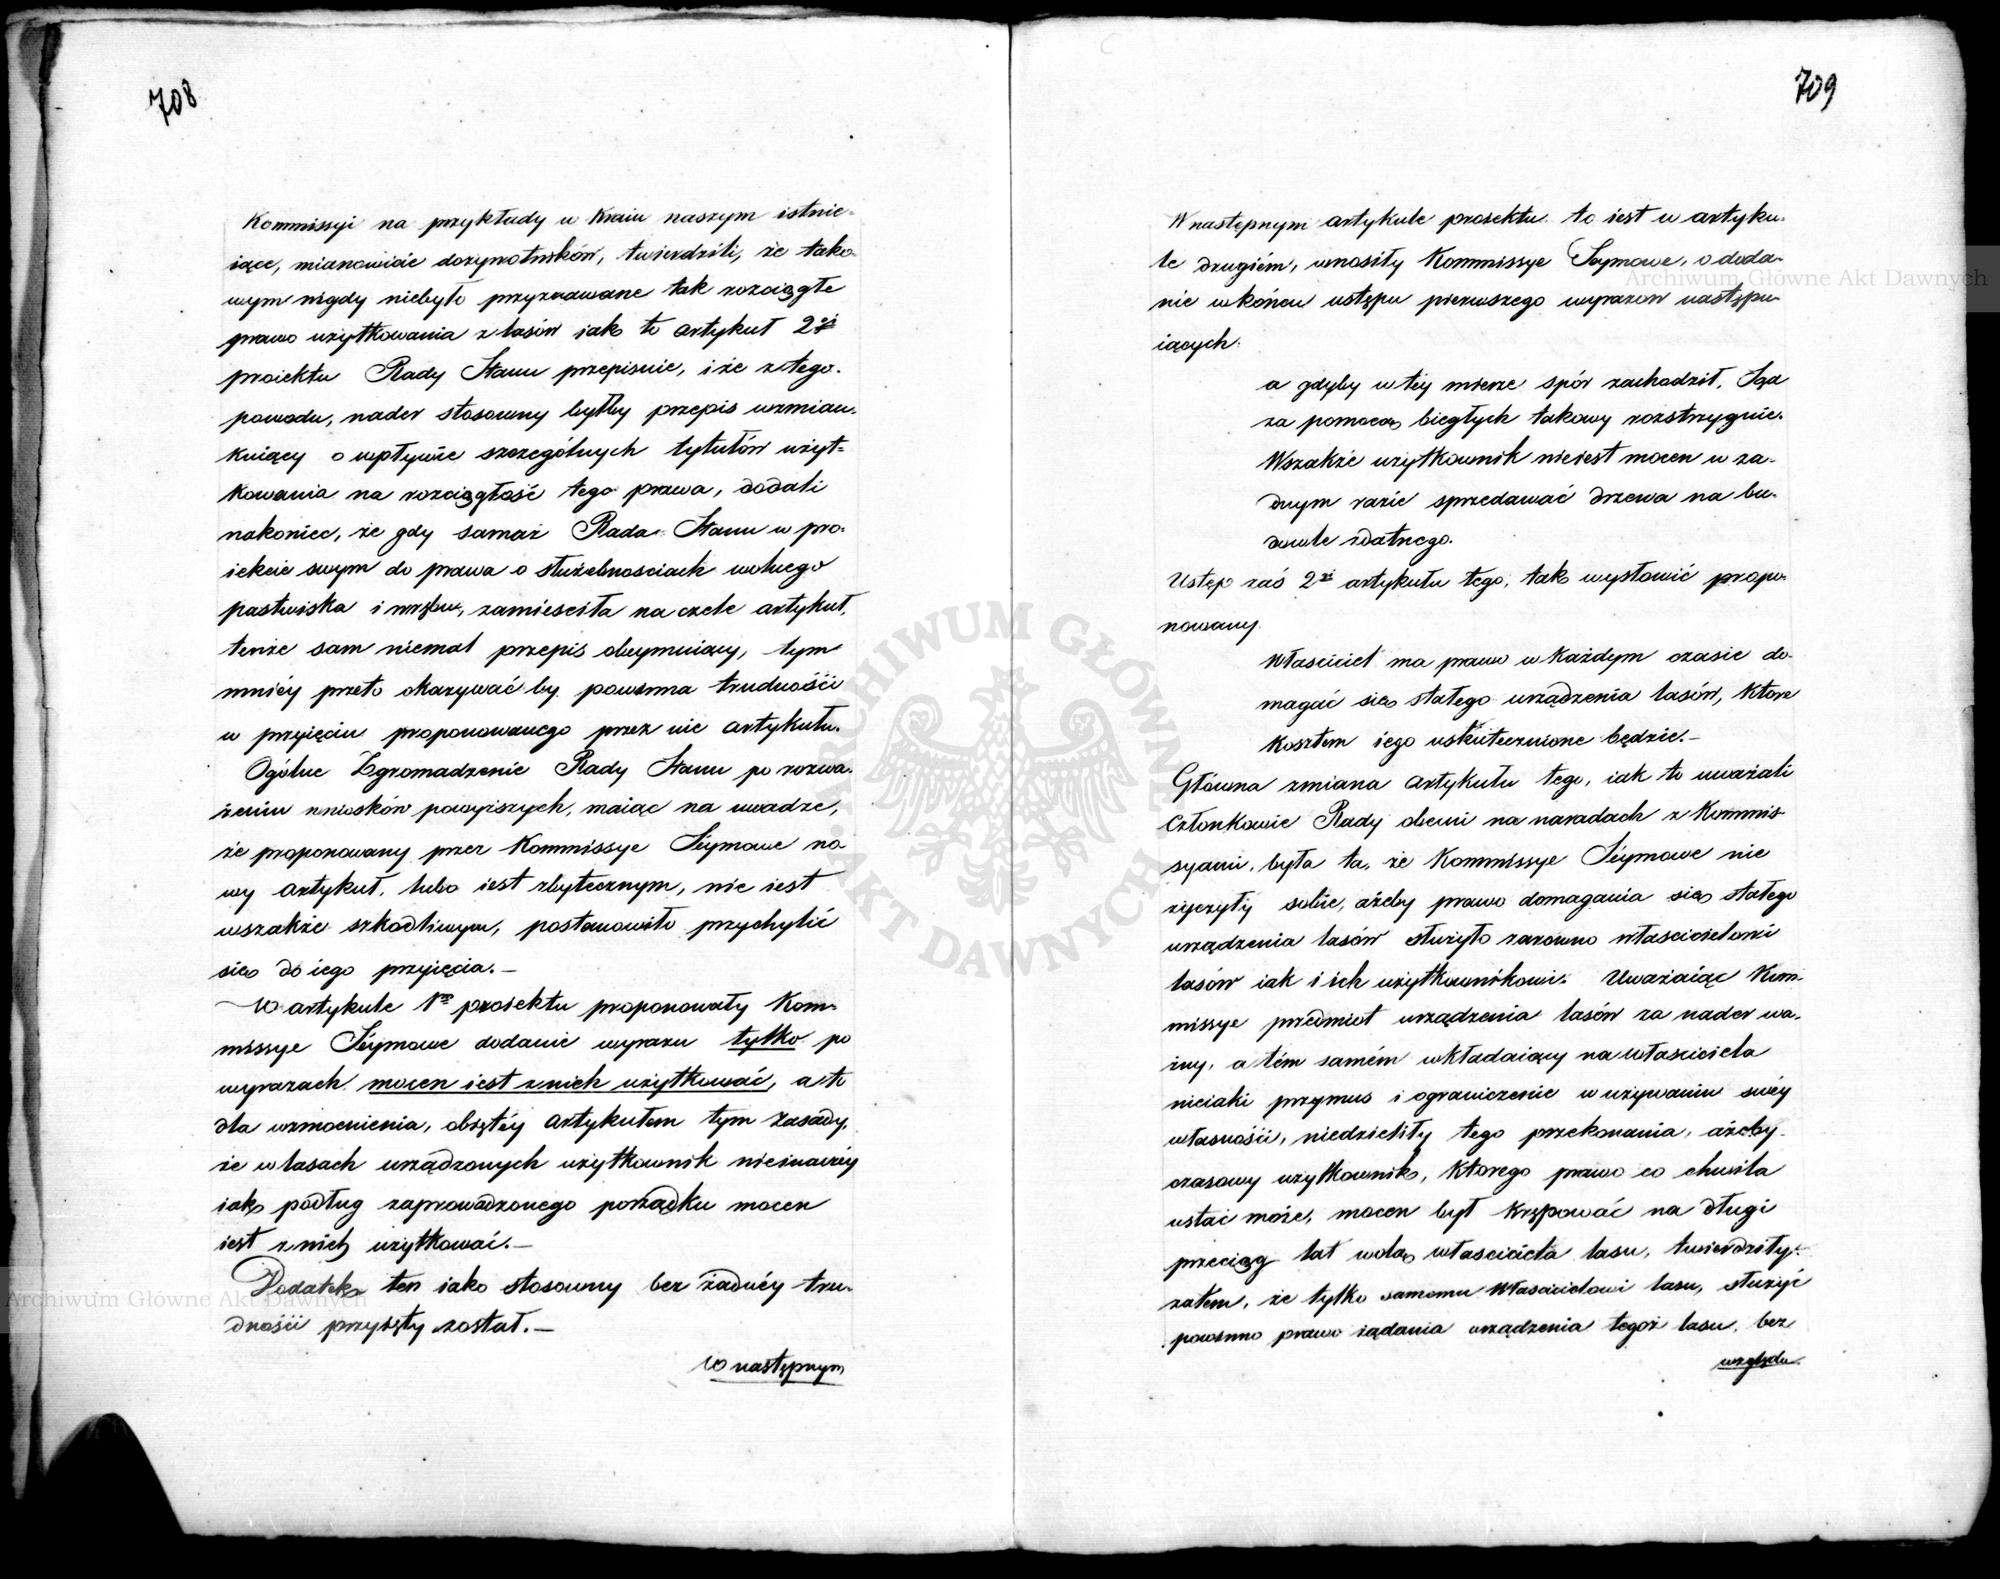 708
Kommissyi na przykłady w Kraiu naszym istnie-
iące, mianowicie dożywotników, twierdzili, że tako-
wym nigdy niebyło przyznawane tak rozciągłe
prawo użytkowania z lasów iak to artykuł 2gi
proiektu Rady Stanu przepisuie, i że z tego
powodu, nader stosowny byłby przepis wzmian-
kuiący o wpływie szczególnych tytułów użyt-
kowania na rozciągłość tego prawa, dodali
nakoniec, że gdy samaż Rada Stanu w pro-
iekcie swym do prawa o służebnościach wolnego
pastwiska i wrębu, zamieściła na czele artykuł,
tenże sam niemal przepis obeymuiący, tym
mniéy przeto okazywać by powinna trudności
w przyięciu proponowanego przez nie artykułu.
Ogólne Zgromadzenie Rady Stanu po rozwa-
żeniu wniosków powyższych, maiąc na uwadze,
że proponowany przez Kommissye Seymowe no
wy artykuł, lubo iest zbytecznym, nie iest
wszakże szkodliwym, postanowiło przychylić
się do iego przyięcia.—
W artykule 1m proiektu proponowały Kom-
missye Seymowe dodanie wyrazu tylko po
wyrazach mocen iest z nich użytkować, a to
dla wzmocnienia, obiętéy artykułem tym zasady,
że w lasach urządzonych użytkownik nieinaczéy
iak podług zaprowadzonego porządku mocen
iest z nich użytkować.—
Dodatek ten iako stosowny bez żadnéy tru-
dności przyięty został.—
W następnym
709
W następnym artykule proiektu to iest w artyku-
le drugiém, wnosiły Kommissye Seymowe, o doda-
nie w końcu ustępu pierwszego wyrazow następu-
iących:
a gdyby w téy mierze spór zachodził, Sąd
za pomocą biegłych takowy rozstrzygnie.
Wszakże użytkownik nieiest mocen w ża-
dnym razie sprzedawać drzewa na bu-
dowle zdatnego.
Ustęp zaś 2gi artykułu tego, tak wysłowić propo-
nowany
Właściciel ma prawo w każdym czasie do-
magać się stałego urządzenia lasów, które
kosztem iego uskutecznione będzie.—
Główna zmiana artykułu tego, iak to uważali
Członkowie Rady obecni na naradach z Kommis-
syami, była ta, że Kommissye Seymowe nie
życzyły sobie, ażeby prawo domagania się stałego
urządzenia lasów służyło zarowno właścicielowi
lasów iak i ich użytkownikowi. Uważaiąc Kom-
missye przedmiot urządzenia lasów za nader wa-
żny, a tém samém wkładaiący na właściciela
nieiaki przymus i ograniczenie w używaniu swéy
własności, niedzieliły tego przekonania, ażeby
czasowy użytkownik, którego prawo co chwila
ustać może, mocen był krępować na długi
przeciąg lat wolą właściciela lasu, twierdziły
zatem, że tylko samemu Właścicielowi lasu, służyć
powinno prawo żądania urządzenia tegoż lasu, bez
względu
Archiwum Główne Akt Dawnych
Archiwum Główne Akt Dawnych
ARCHIWUM GŁÓWNE AKT DAWNYCH